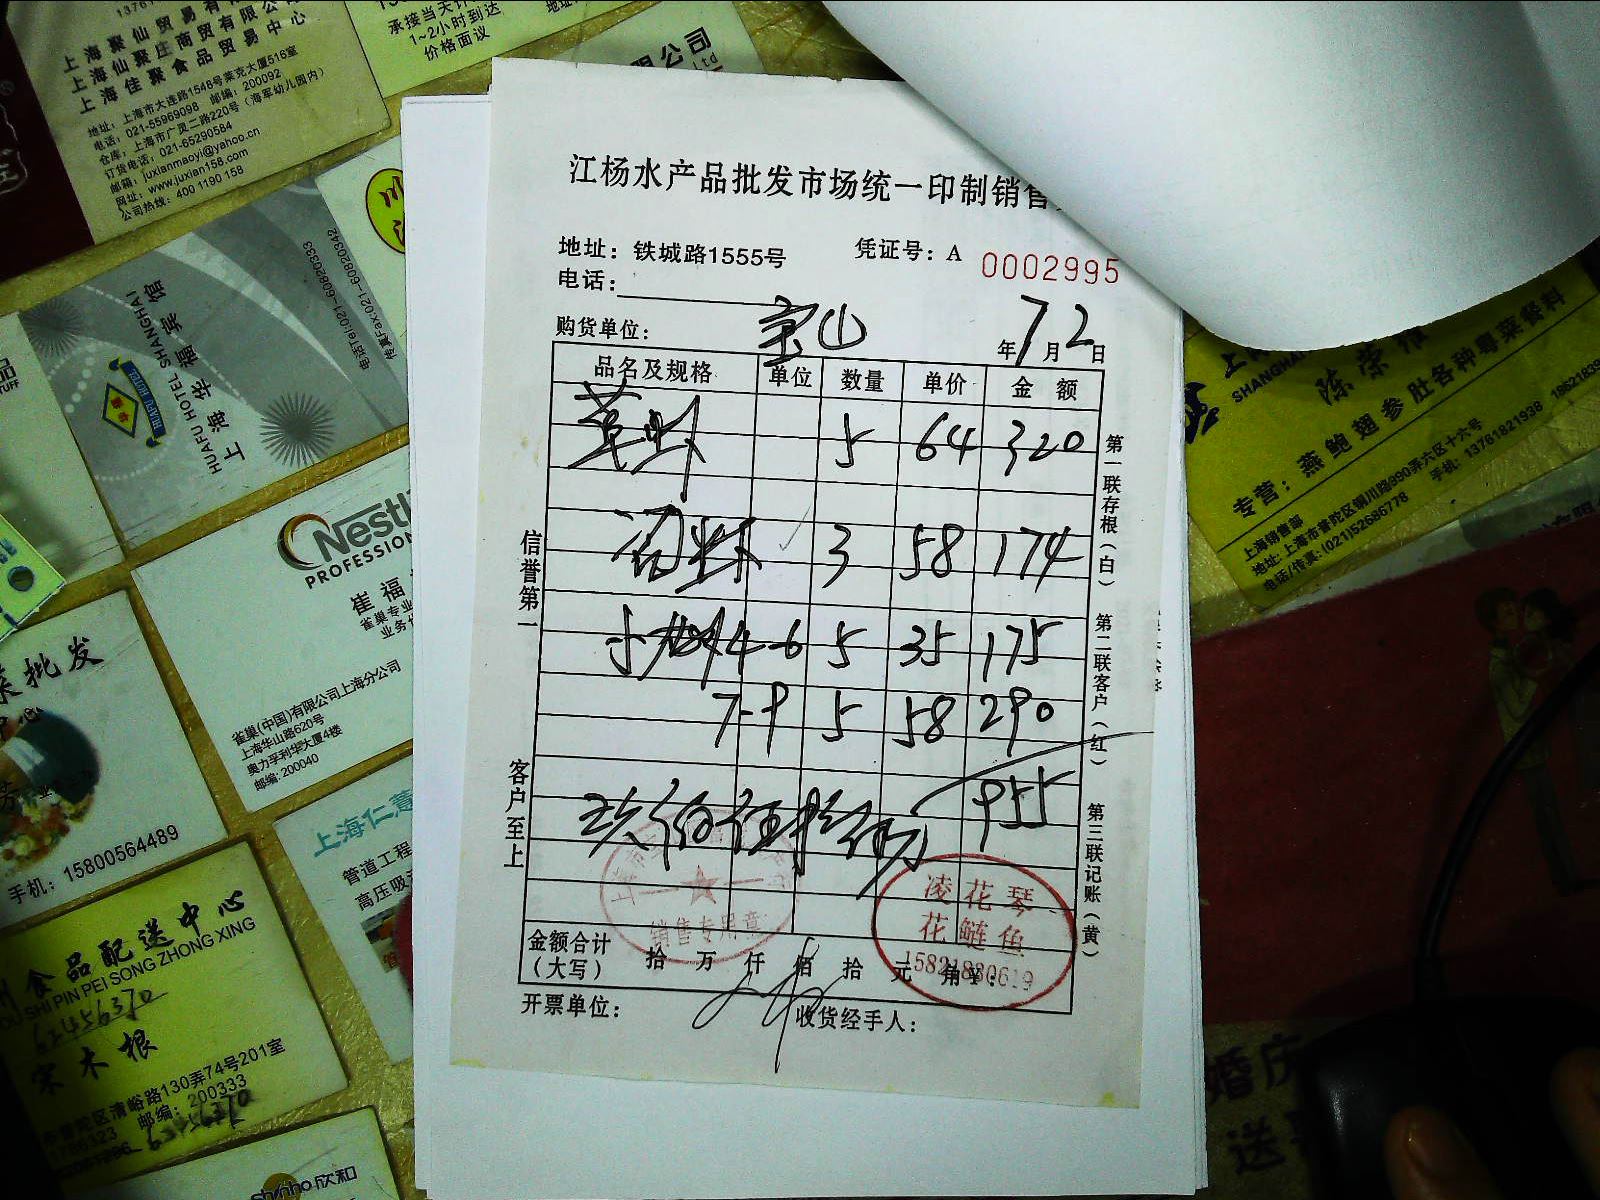 上海聚仙贸易有
上海仙聚庄商贸有限公
上海佳聚食品贸易中心
地址：上海市大连路1548号莱克大厦516室
电话：021-55969098 邮编：200092
仓库：上海市广灵二路220号（海军幼儿园内）
订货电话：021-65290584
邮箱：juxianmaoyi@yahoo.cn
网址：www.juxian158.com
公司热线：400 1190 158
承接当天
1~2小时到达
价格面议
限公司
江杨水产品批发市场统一印制销售
地址：铁城路1555号
凭证号：A 0002995
电话：
购货单位：宝山
年7月2日
品名及规格 单位 数量 单价 金额
草虾 5 64 320
3 58 174
4-6 5 35 175
7-9 5 58 290
955
玖佰伍拾伍
信誉第一
客户至上
第一联存根（白）
第二联客户（红）
第三联记账（黄）
销售专用章
凌花琴
花鲢鱼
15821880619
金额合计（大写） 拾 万 仟 佰 拾 元 角 ¥：
开票单位：
收货经手人：
上海华福宾馆
HUAFU HOTEL SHANGHAI
电话Tel:021-60820333
传真Fax:021-60820342
Nestl
PROFESSION
崔福
雀巢专业
业务
雀巢(中国)有限公司上海分公司
上海华山路620号
奥力孚利华大厦4楼
邮编: 200040
菜批发
手机：15800564489
上海仁慧
管道工程
高压吸
食品配送中心
SHI PIN PEI SONG ZHONG XING
62456370
宋木根
市普陀区清峪路130弄74号201室
邮编：200333
62456370
shinho欣和
SHANGHA
陈荣
专营：燕鲍翅参肚各种粤菜餐料
上海销售部
地址：上海市普陀区铜川路990弄六区十六号
电话/传真：(021)52686778 手机：13761821938 18621839
婚庆
送